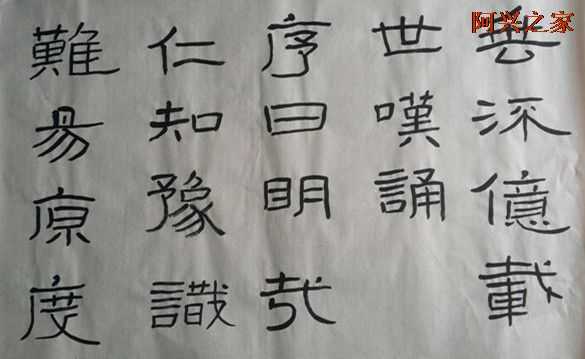 阿兴之家
垂流億載
世嘆誦
序曰明哉
仁知豫識
難易原度